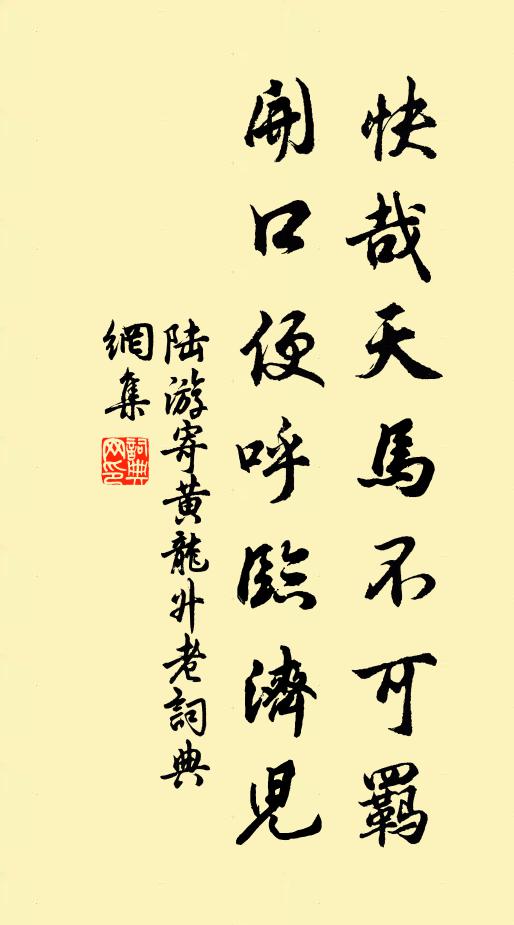 快哉天馬不可羈
開口便呼臨濟兒
陸游寄黃龍升老詞典
網集
詞典
网印